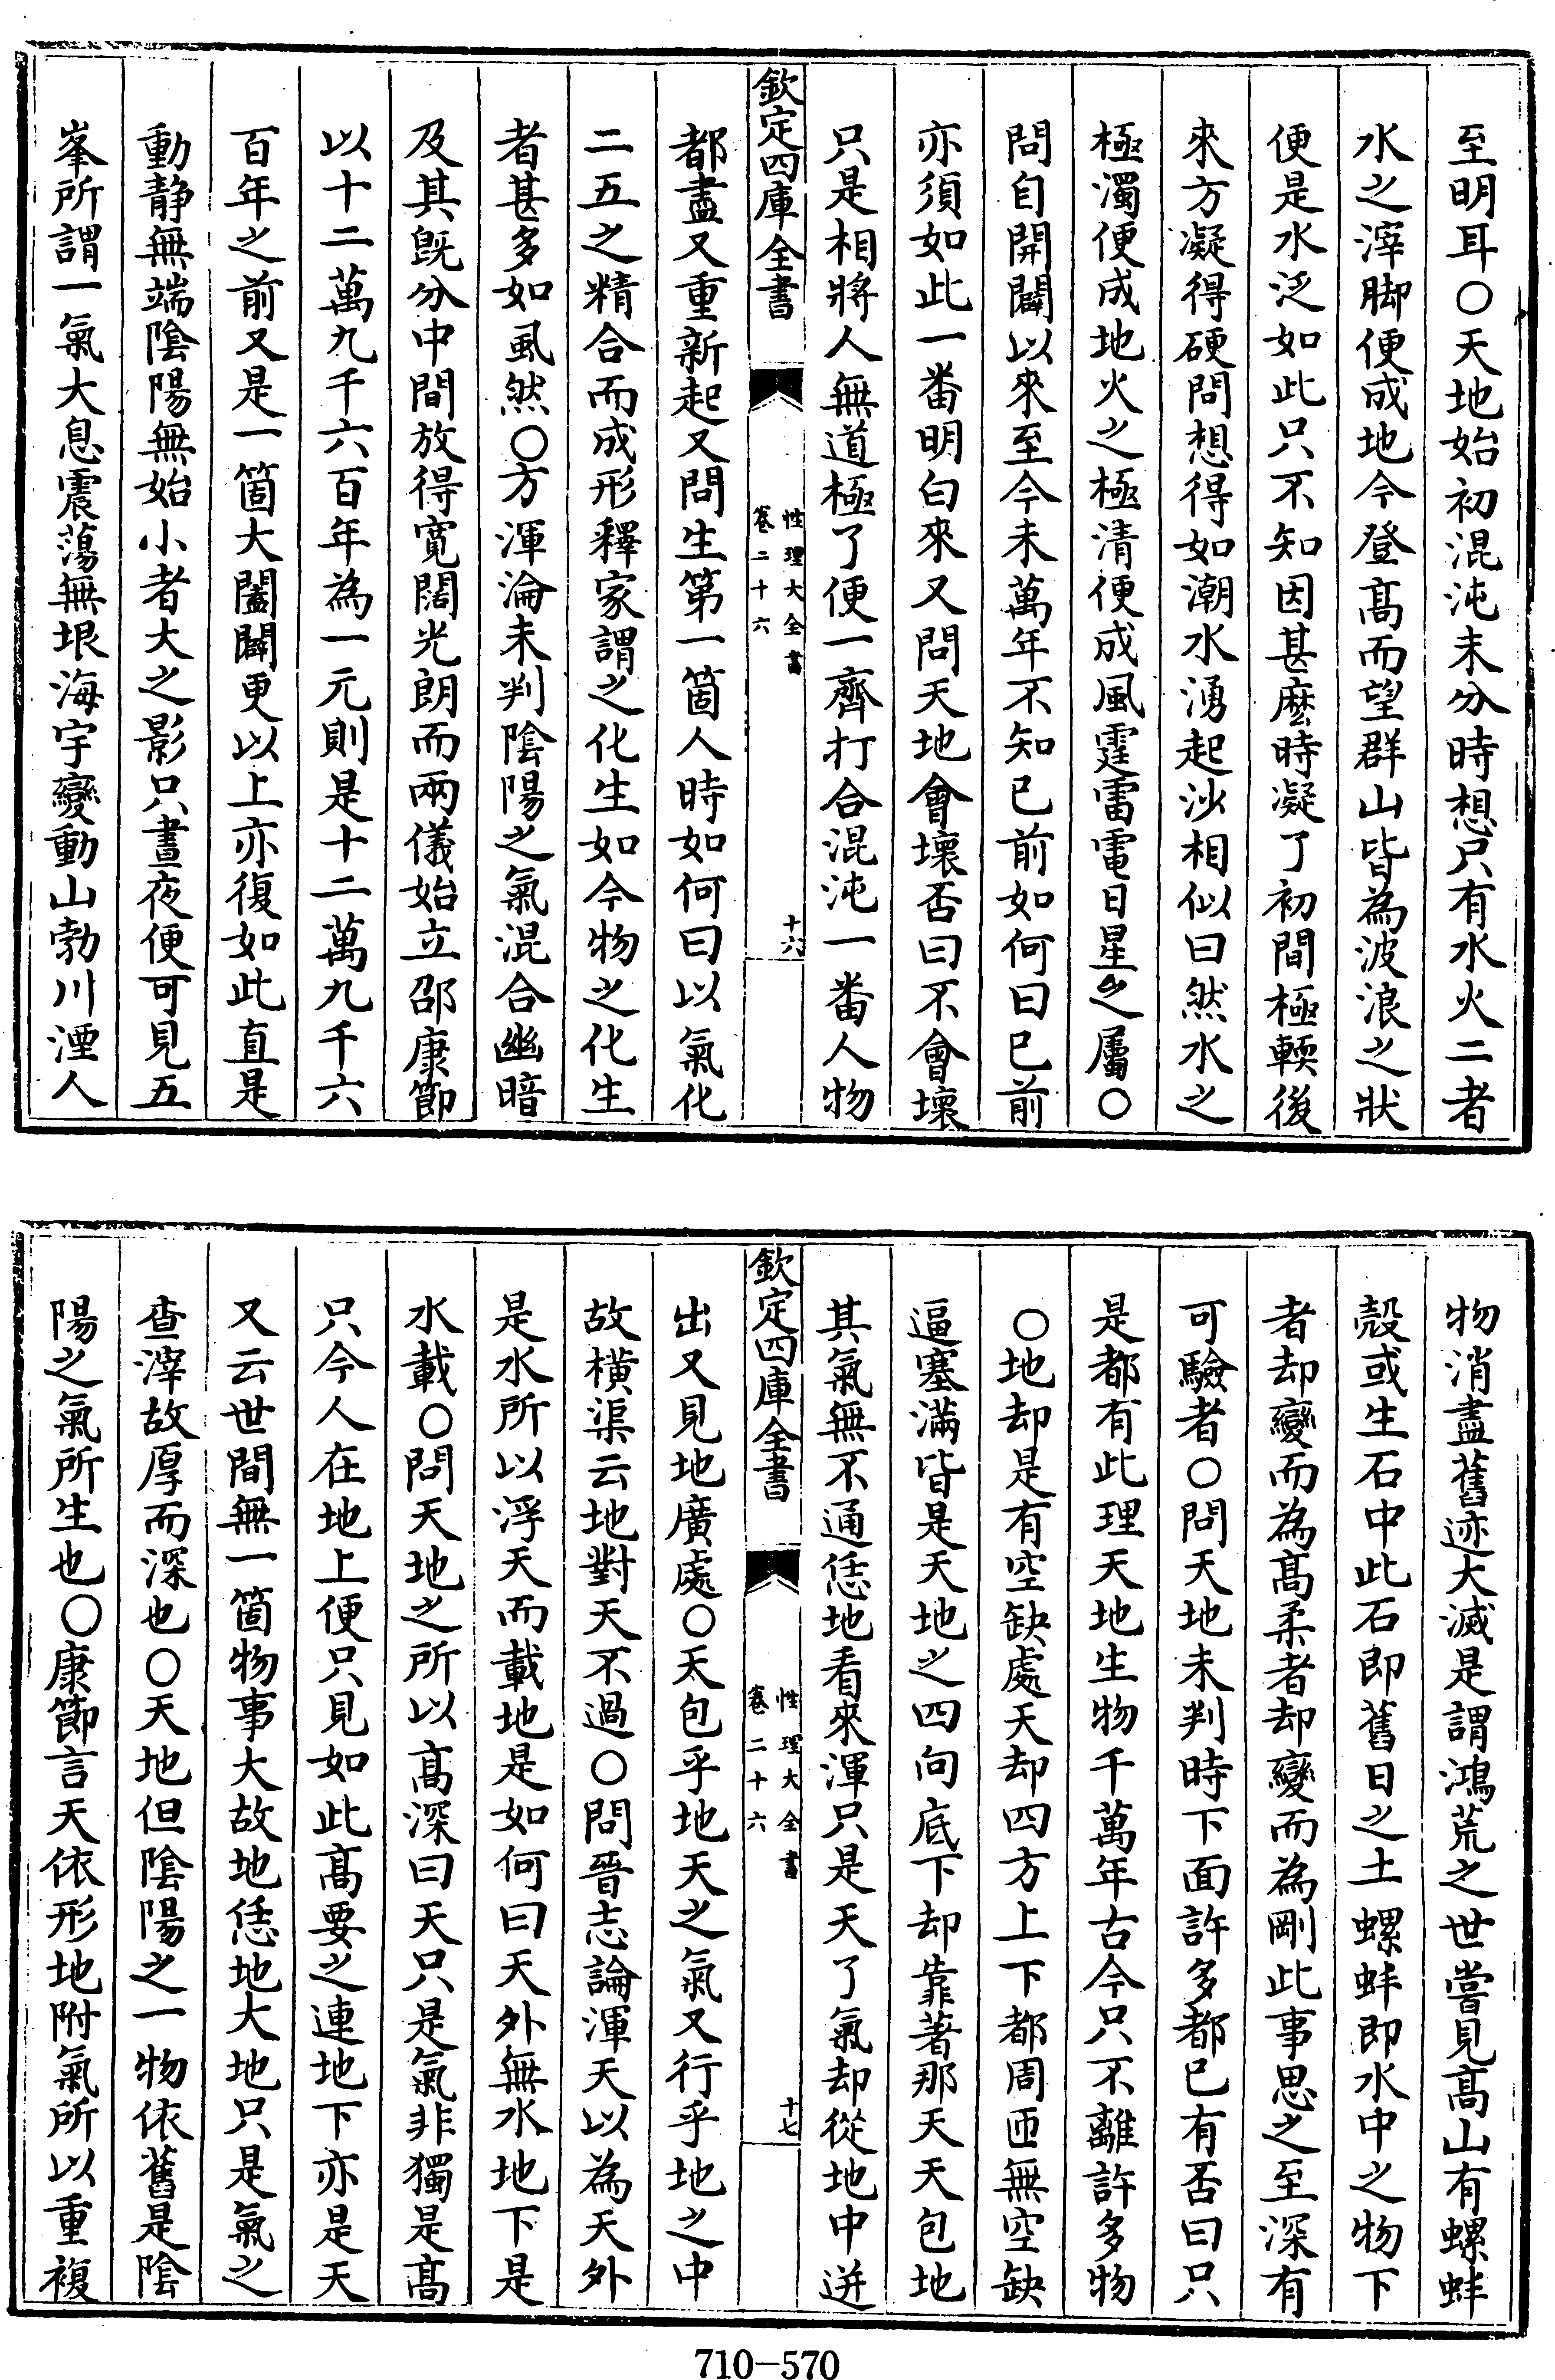 至明耳○天地始初混沌未分時想只有水火二者
水之滓脚便成地今登髙而望群山皆為波浪之狀
便是水泛如此只不知因甚麽時凝了初間極輭後
來方凝得硬問想得如潮水湧起沙相似曰然水之
極濁便成地火之極清便成風霆雷電日星之屬○
問自開闢以來至今未萬年不知已前如何曰已前
亦須如此一番明白來又問天地㑹壞否曰不㑹壞
只是相將人無道極了便一齊打合混沌一番人物
欽定四庫全書
性理大全書
卷二十六
十六
都盡又重新起又問生第一箇人時如何曰以氣化
二五之精合而成形釋家謂之化生如今物之化生
者甚多如虱然○方渾淪未判陰陽之氣混合幽暗
及其旣分中間放得寛闊光朗而兩儀始立邵康節
以十二萬九千六百年為一元則是十二萬九千六
百年之前又是一箇大闔闢更以上亦復如此直是
動静無端陰陽無始小者大之影只晝夜便可見五
峯所謂一氣大息震蕩無垠海宇變動山勃川湮人
物消盡舊迹大滅是謂鴻荒之世嘗見髙山有螺蚌
殼或生石中此石即舊日之土螺蚌即水中之物下
者却變而為髙柔者却變而為剛此事思之至深有
可驗者○問天地未判時下面許多都已有否曰只
是都有此理天地生物千萬年古今只不離許多物
○地却是有空缺處天却四方上下都周匝無空缺
逼塞滿皆是天地之四向底下却靠著那天天包地
其氣無不通恁地看來渾只是天了氣却從地中迸
欽定四庫全書
性理大全書
卷二十六
十七
出又見地廣處○天包乎地天之氣又行乎地之中
故横渠云地對天不過○問晉志論渾天以為天外
是水所以浮天而載地是如何曰天外無水地下是
水載○問天地之所以髙深曰天只是氣非獨是髙
只今人在地上便只見如此髙要之連地下亦是天
又云世間無一箇物事大故地恁地大地只是氣之
查滓故厚而深也○天地但陰陽之一物依舊是陰
陽之氣所生也○康節言天依形地附氣所以重複
710-570